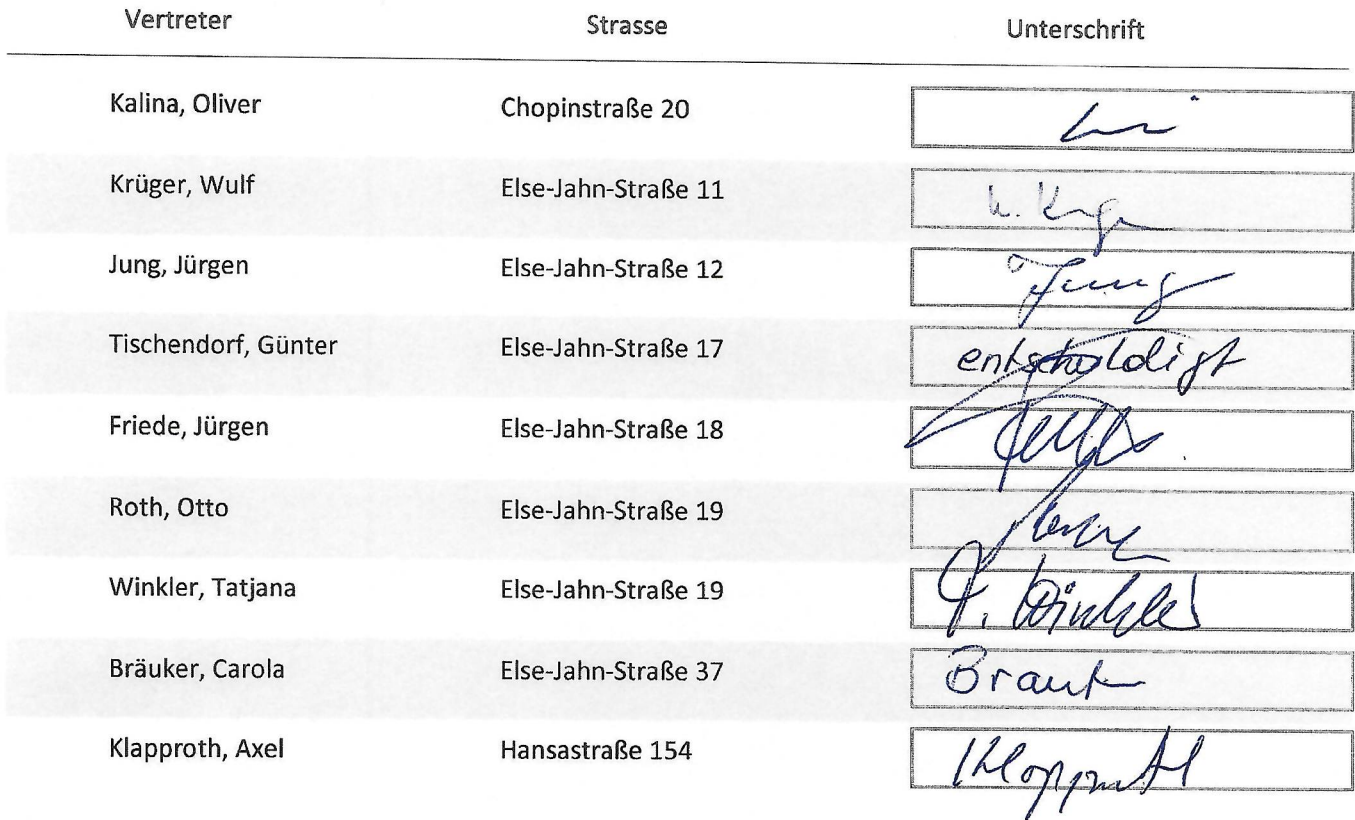 Vertreter Strasse Unterschrift
Kalina, Oliver Chopinstraße 20
Krüger, Wulf Else-Jahn-Straße 11
Jung, Jürgen Else-Jahn-Straße 12 Jung
Tischendorf, Günter Else-Jahn-Straße 17 entschuldigt
Friede, Jürgen Else-Jahn-Straße 18
Roth, Otto Else-Jahn-Straße 19
Winkler, Tatjana Else-Jahn-Straße 19 T. Winkler
Bräuker, Carola Else-Jahn-Straße 37
Klapproth, Axel Hansastraße 154 Klapproth